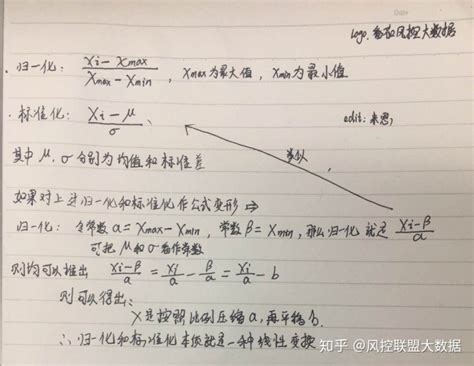 Date
logo: 番茄风控大数据
· 归一化: (Xi - Xmax)/(Xmax - Xmin) , Xmax为最大值, Xmin为最小值
· 标准化: (Xi - μ)/σ 、
edit: 来恩
类似
其中 μ, σ 分别为均值和标准差
如果对上述归一化和标准化作公式变形 ⇒
归一化: 令常数 α = Xmax - Xmin , 常数 β = Xmin, 那么归一化 就是 (Xi - β)/α
可把 μ 和 σ 看作常数
则均可以推出 (Xi - β)/α = Xi/α - β/α = Xi/α - b
则可以得出:
X是按照比例压缩 α, 再平移 b.
∴ 归一化和标准化本质就是一种线性变换
知乎 @风控联盟大数据